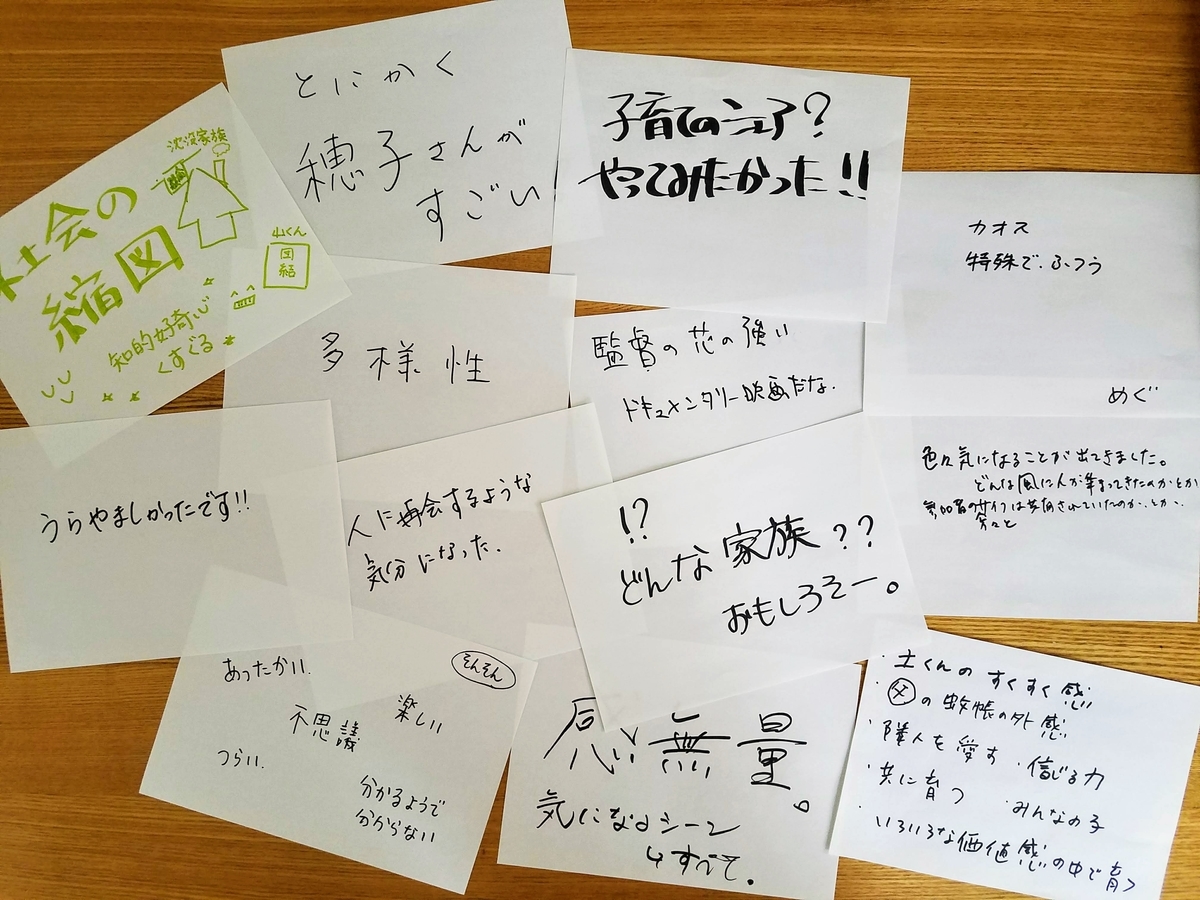 とにかく
穂子さんが
すごい
子育てのシェア?
やってみたかった!!
沈没家族
社会の
縮図
山くん
団結
知的好奇心
くすぐる
カオス
特殊で、ふつう
めぐ
多様性
監督の芯の強い
ドキュメンタリー映画だな.
うらやましかったです!!
人に再会するような
気分になった.
色々気になることが出てきました。
どんな風に人が集まってきたのかとか
参加者のサイフは共有されていたのか、とか、
等々と
!?
どんな家族??
おもしろそー。
あったかい.
そんそん
楽しい
不思議
つらい.
分かるようで
分からない
感無量。
気になるシーン
すべて.
・土くんのすくすく感
・父の蚊帳の外感
・隣人を愛す ・信じる力
・共に育つ ・みんなの子
・いろいろな価値感の中で育つ